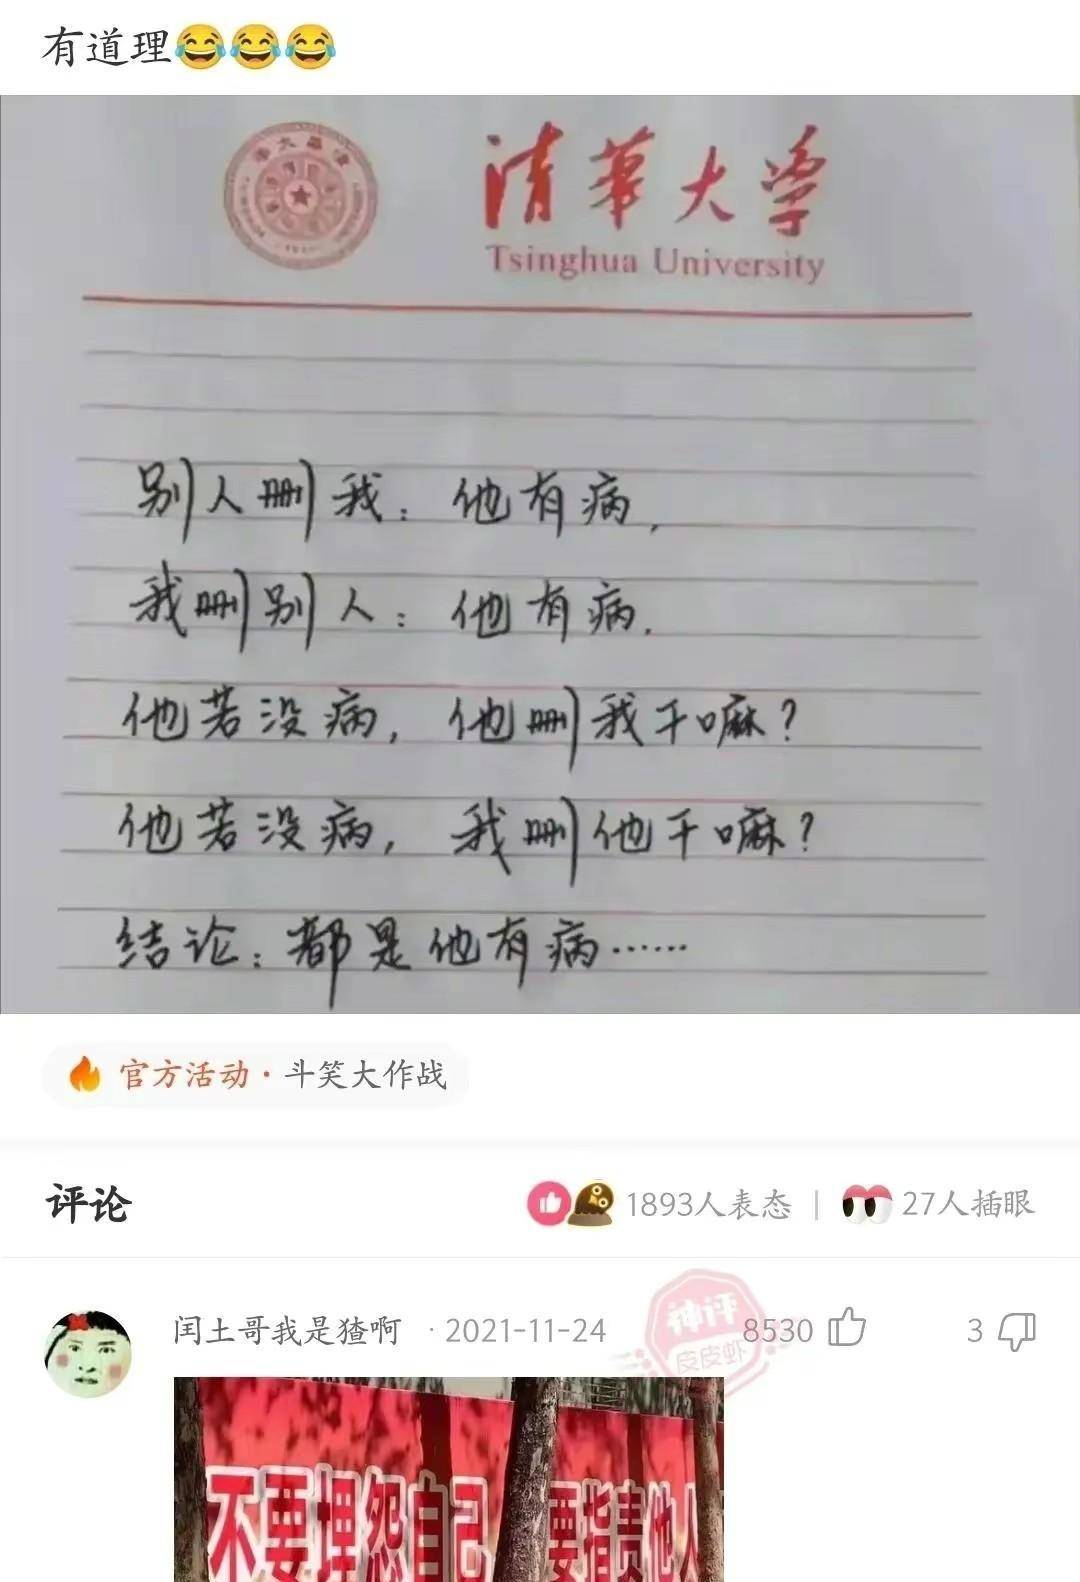 有道理😂😂😂
清華大学
Tsinghua University
别人删我：他有病，
我删别人：他有病．
他若没病，他删我干嘛？
他若没病，我删他干嘛？
结论：都是他有病……
官方活动·斗笑大作战
评论
1893人表态 | 27人插眼
闰土哥我是猹啊 · 2021-11-24
神评
皮皮虾
8530
3
不要埋怨自己 要指责他人